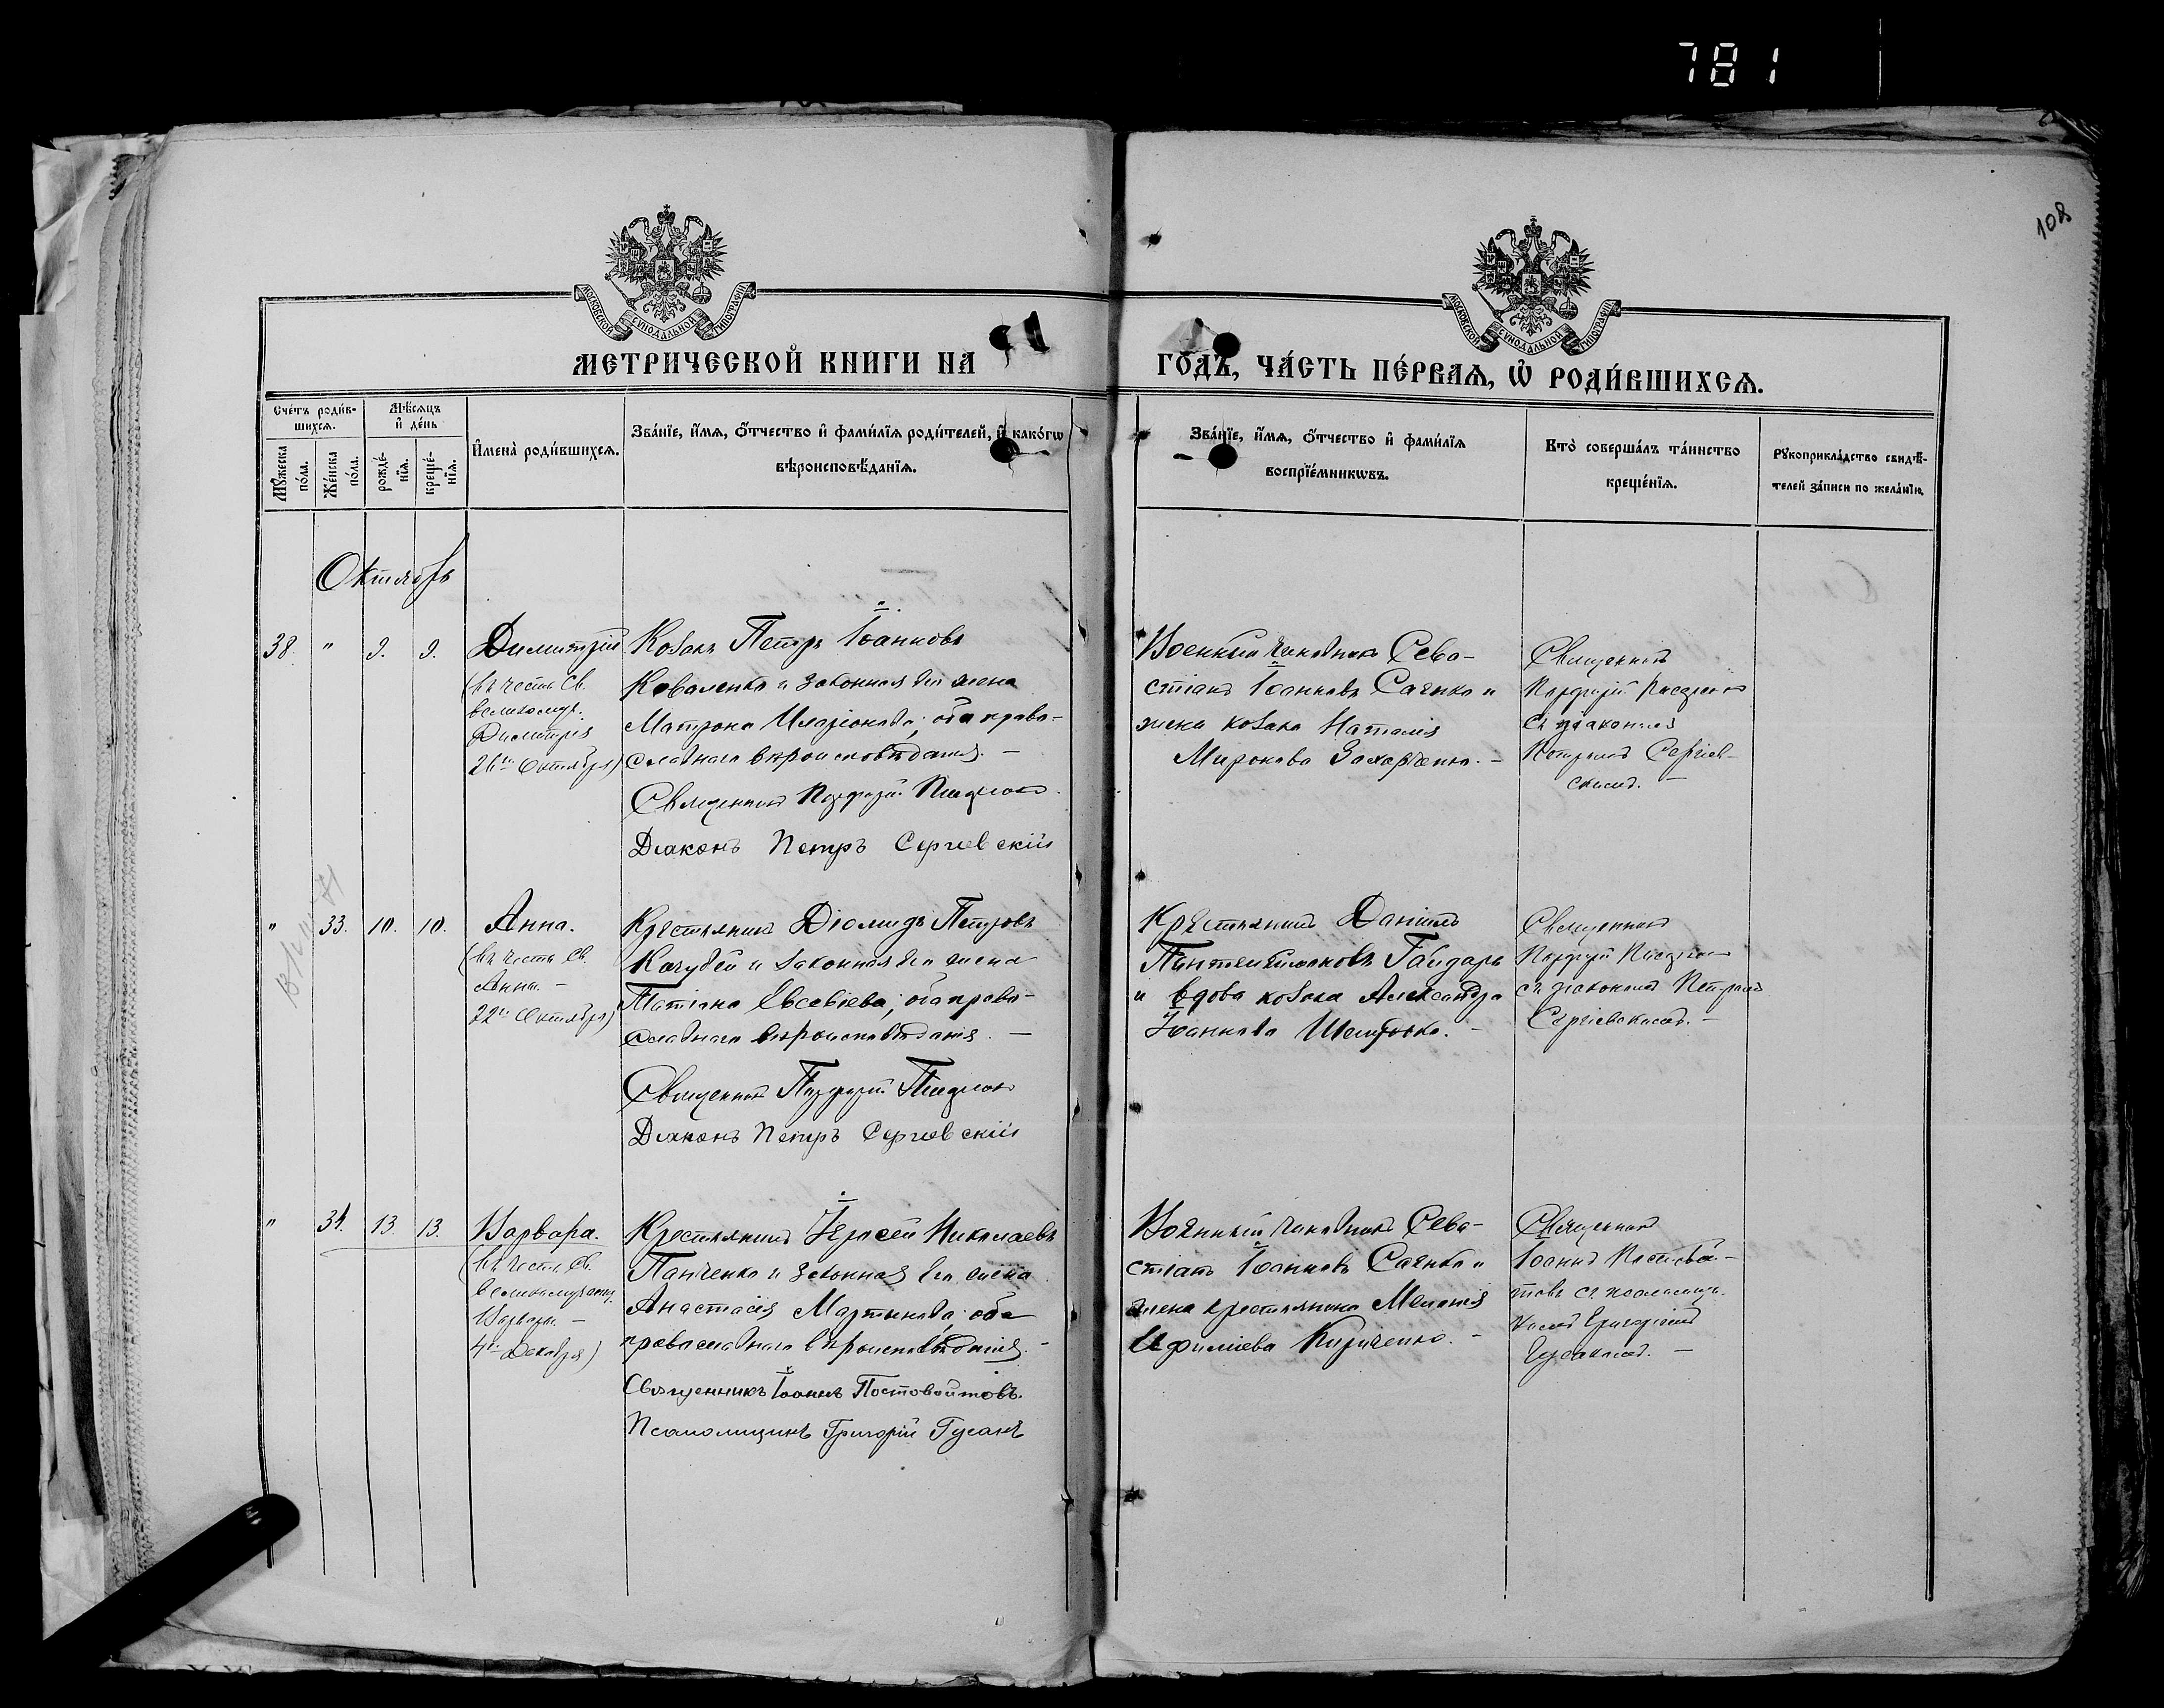 781
108
МОСКОВСКОЙ СУНОДАЛЬНОЙ ТИПОГРАФІИ
МОСКОВСКОЙ СУНОДАЛЬНОЙ ТИПОГРАФІИ
МЕТРИЧЕСКОЙ КНИГИ НА
ГОДЪ, ЧАСТЬ ПЕРВАЯ, Ѡ РОДИВШИХСЯ.
Счетъ родив-
шихся.
Мѣсяцъ
и день
Мужеска пола.
Женска пола.
рожде-
нїя.
креще-
нїя.
Имена родившихся.
Званїе, имя, отчество и фамилїя родителей, и какогѡ
вѣроисповѣданїя.
Званїе, имя, отчество и фамилїя
воспрїемникѡвъ.
Кто совершалъ таинство
крещенїя.
Рукоприкладство свидѣ-
телей записи по желанїю.
Октябрь
38. " 9. 9. Димитрій
(въ честь Св.
великомуч.
Димитрія
26го Октября)
Козакъ Петръ Іоанновъ
Коваленко и законная его жена
Матрона Иларіонова, оба право-
славнаго вѣроисповѣданія. —
Священникъ Порфирій
Діаконъ Петръ Сергіевскій
Военный чиновникъ Сева-
стіанъ Іоанновъ Саенко и
жена козака Наталія
Миронова Захарченко. —
Священникъ
Порфирій
съ діакономъ
Петромъ Сергіев-
скимъ. —
" 33. 10. 10. Анна.
(въ честь Св.
Анны. —
22го Октября)
Крестьянинъ Діомидъ Петровъ
Кочубей и законная его жена
Татіана Евсевіева, оба право-
славнаго вѣроисповѣданія. —
Священникъ Порфирій
Діаконъ Петръ Сергіевскій
Крестьянинъ Даніилъ
Пантелеимоновъ Гайдарь
и вдова козака Александра
Іоаннова
Священникъ
Порфирій
съ діакономъ Петромъ
Сергіевскимъ. —
" 34. 13. 13. Варвара.
(въ честь Св.
великомучениц.
Варвары. —
4го Декабря)
Крестьянинъ Іерофей Николаевъ
Панченко и законная его жена
Анастасія Мартынова, оба
православнаго вѣроисповѣданія. —
Священникъ Іоаннъ Постовойтовъ.
Псаломщикъ Григорій Гусакъ
Военный чиновникъ Сева-
стіанъ Іоанновъ Саенко и
жена крестьянина Меланія
Кириченко. —
Священникъ
Іоаннъ Постовой-
товъ съ псаломщи-
комъ Григоріемъ
Гусакомъ. —